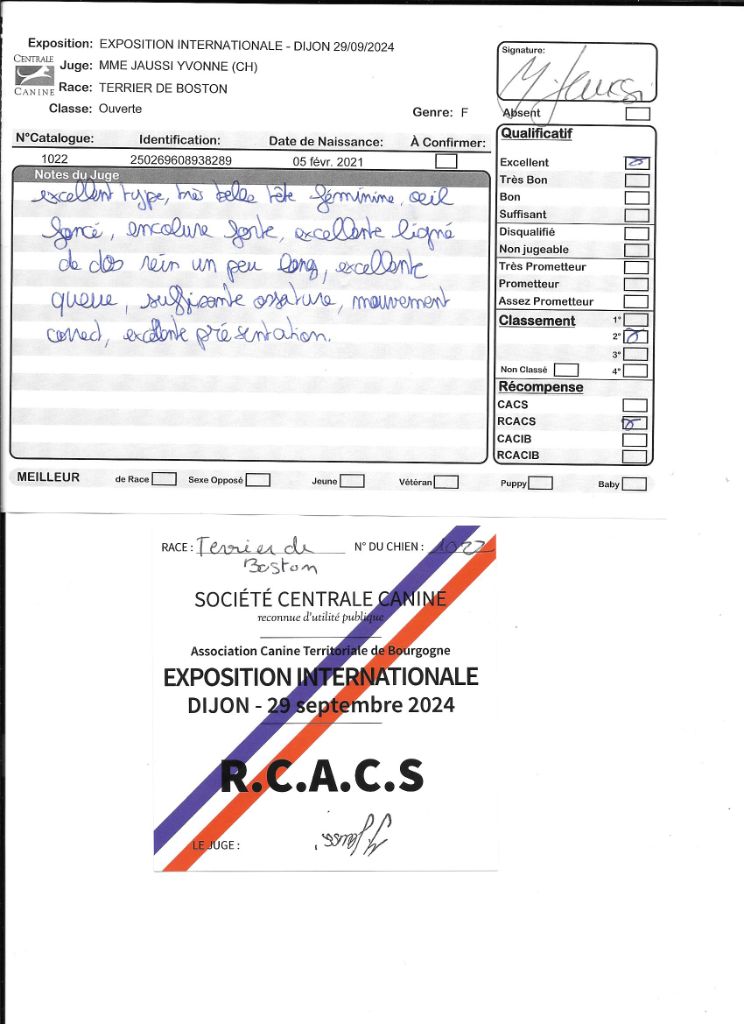 Exposition: EXPOSITION INTERNATIONALE - DIJON 29/09/2024
CENTRALE
CANINE
Juge: MME JAUSSI YVONNE (CH)
Race: TERRIER DE BOSTON
Classe: Ouverte
Genre: F
Signature:
Y. Jaussi
Absent
N°Catalogue: Identification: Date de Naissance: À Confirmer:
1022 250269608938289 05 févr. 2021
Notes du Juge
excellent type, très belle tête féminine, oeil
foncé, encolure forte, excellente ligne
de dos rein un peu long, excellente
queue, suffisante ossature, mouvement
correct, excellente présentation.
Qualificatif
Excellent
Très Bon
Bon
Suffisant
Disqualifié
Non jugeable
Très Prometteur
Prometteur
Assez Prometteur
Classement 1°
2°
3°
Non Classé 4°
Récompense
CACS
RCACS
CACIB
RCACIB
MEILLEUR de Race Sexe Opposé Jeune Vétéran Puppy Baby
RACE : Terrier de N° DU CHIEN : 1022
Boston
SOCIÉTÉ CENTRALE CANINE
reconnue d'utilité publique
Association Canine Territoriale de Bourgogne
EXPOSITION INTERNATIONALE
DIJON - 29 septembre 2024
R.C.A.C.S
LE JUGE :
Y. Jaussi